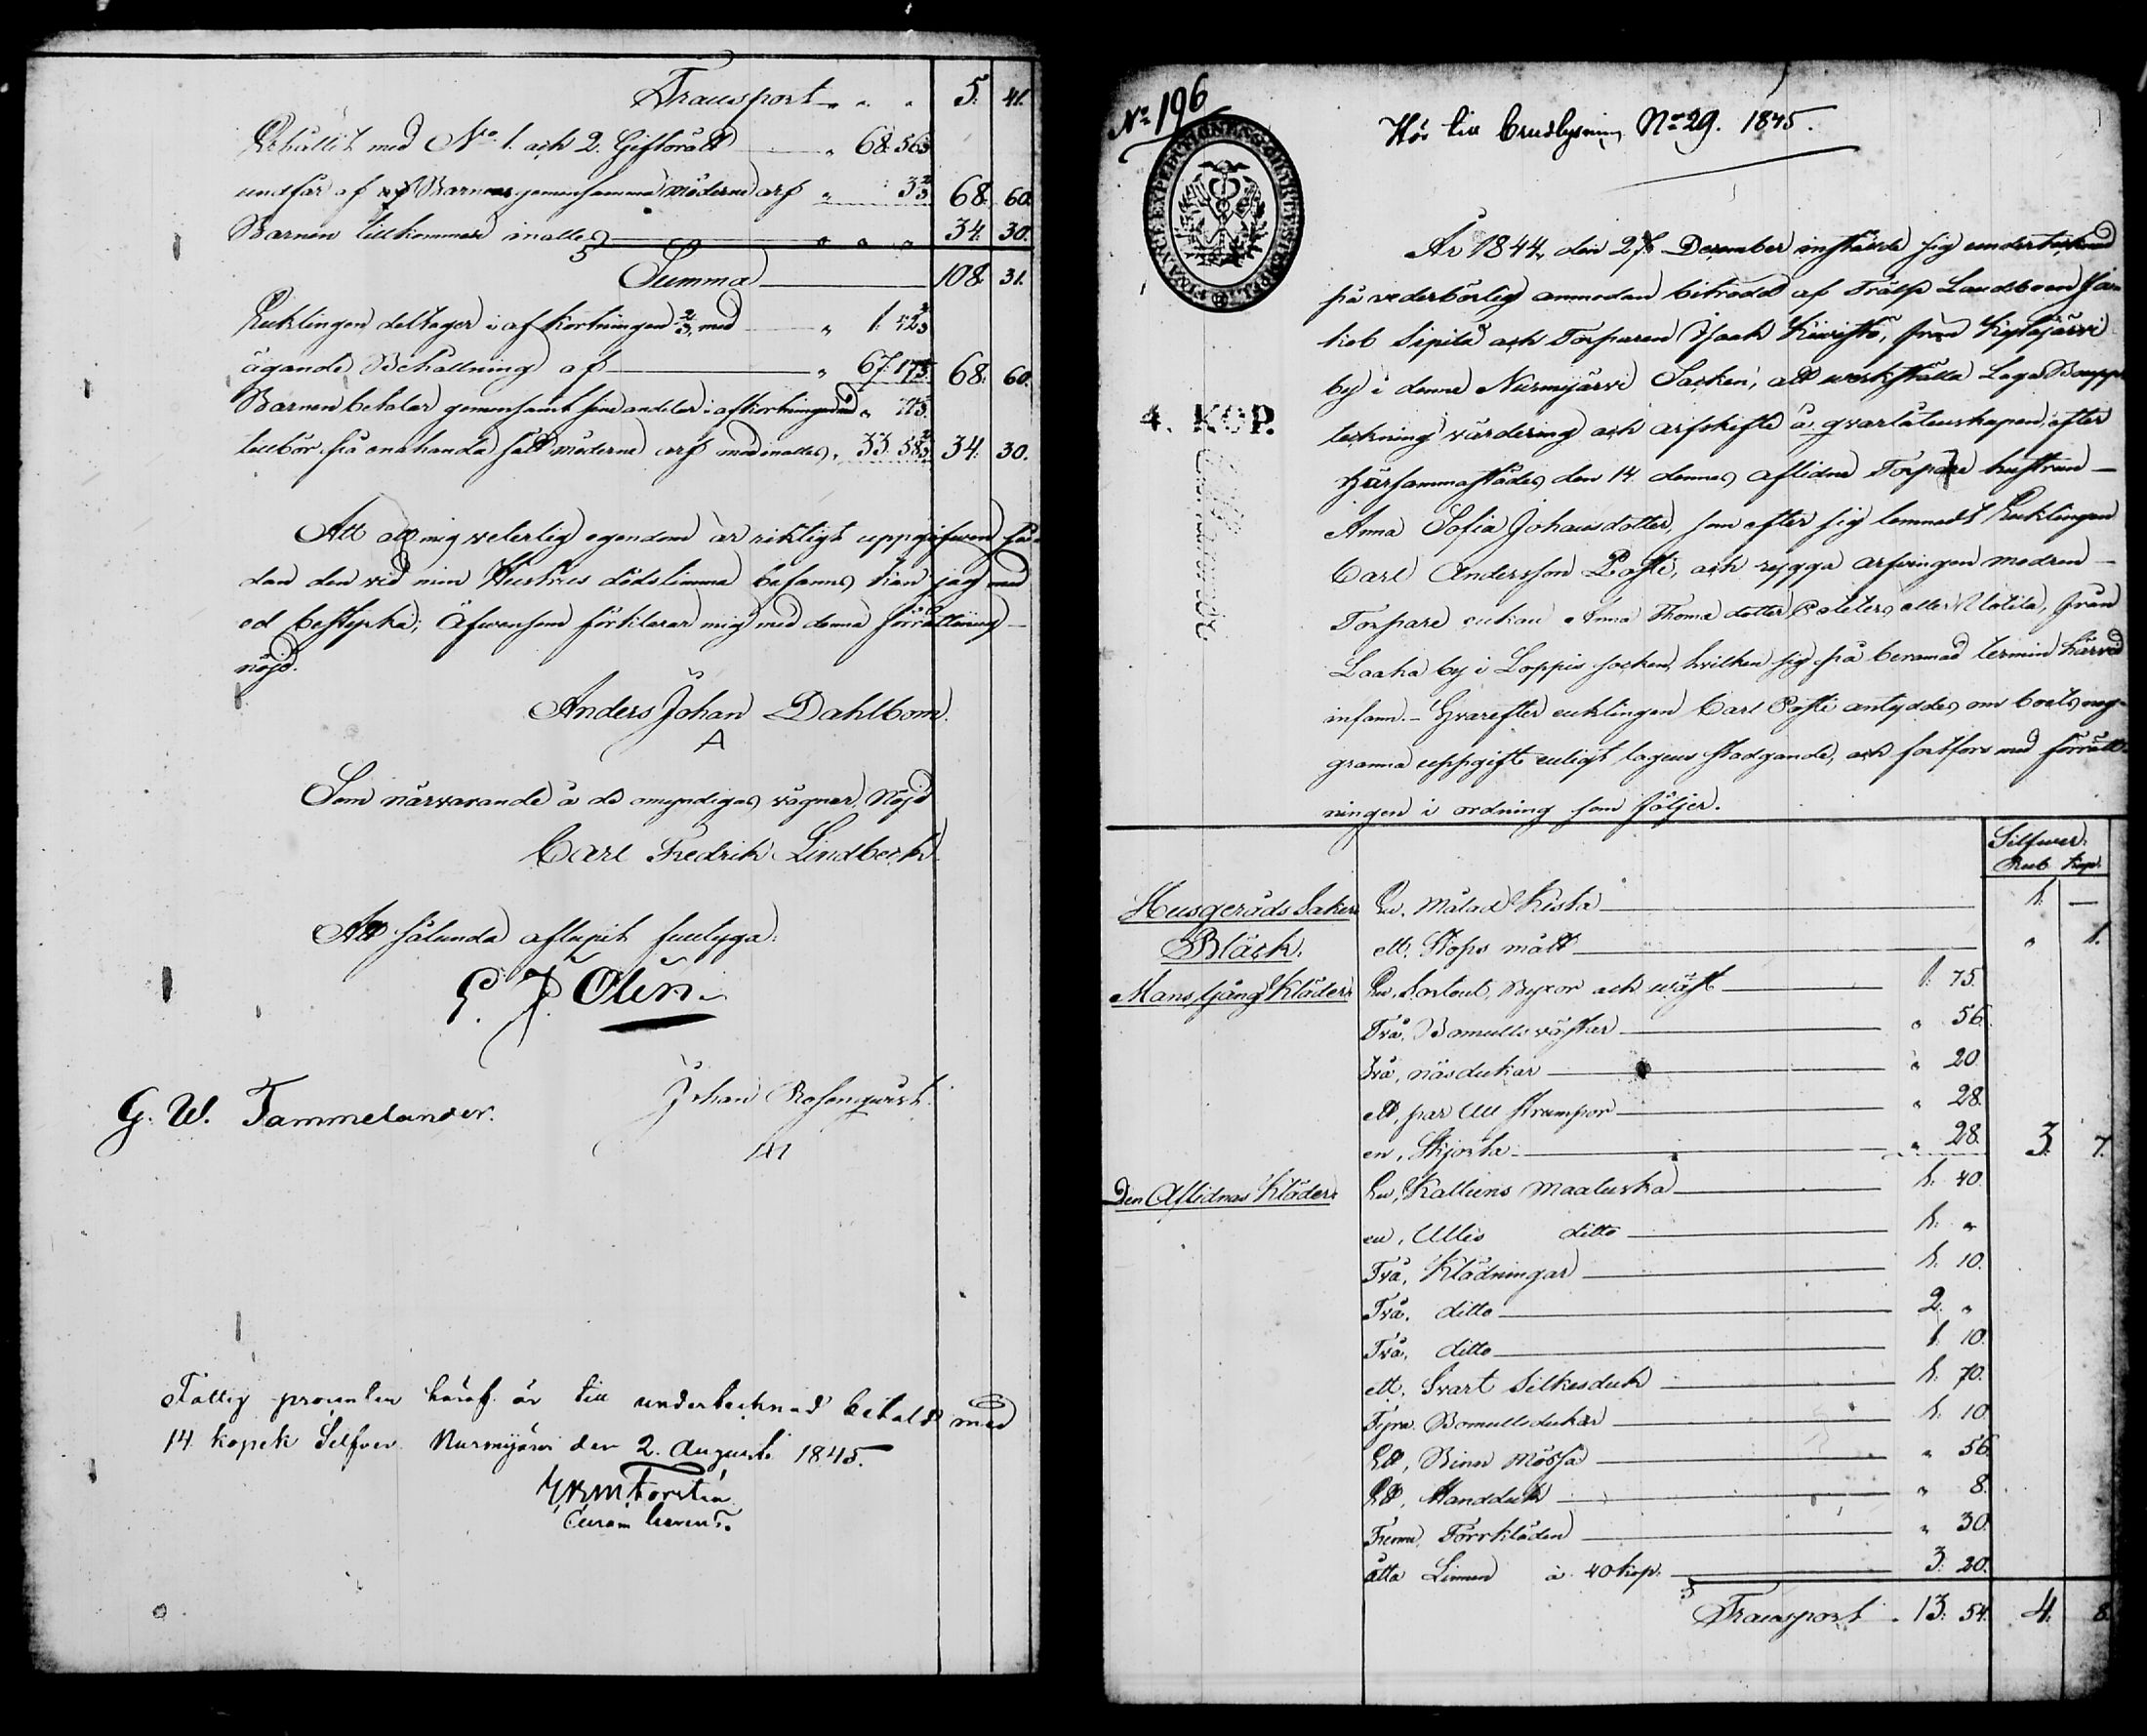 Transport „ „ „ 5. 41.
Behållit med No 1. och 2. Giftorätt „ 68. 56 2/3
undfår af Barnens gemensamma möderne arf „ „ 3 1/3 68. 60.
Barnen tillkommer inalles „ „ „ 34. 30.
Summa 108. 31.
Enklingen deltager i afkortningen 2/3, med „ 1. 42 2/3
ägande Behållning af „ 67. 17 1/3 68. 60.
Barnen betalar gemensamt sine andelar i afkortningen med „ 71 1/3
tillbör på enahanda sätt möderne arf med inalles „ 33. 58 2/3 34. 30.
Att all mig veterlig egendom är riktigt uppgifwen så-
dan den vid min Hustrus dödstimma befanns, kan jag med
ed bestyrka; Äfwensom förklarar mig med denna förrättning
nöjd.
Anders Johan Dahlbom.
A
Som närvarande å de omyndigas vägnar, Nöjd
Carl Fredrik Lindberh
Att sålunda aflupit funlyga:
G. J. Olin
G. W. Tammelander.
Johan Rosenqwist.
Fattig procenten häraf är till undertecknad betalt med
14 kopek Silfver. Nurmijärvi den 2. Augusti 1845.
Forstén
No 196
Hör till Crudlysning No 29. 1845.
FINANCE EXPEDITIONENS CHARTE STEMPEL
4. KOP.
År 1844, den 27 December instälde sig undertecknad
på vederbörlig anmodan biträdd af Trälss Landboen
Sipilä och Torparen Isaak Kiwistö, från Kytäjärvi
by i denne Nurmijärvi Socken, att werkställa Laga Boupp-
teckning värdering och arfskifte å qvarlåtenskapen, efter
härsammastädes den 14. dennes aflidne Torpare hustrun
Anna Sofia Johansdotter, som efter sig lemnadt Enklingen
Carl Andersson Posti, och rygga arfwingen modren
Torpare enkan Anna Thoma dotter eller Utotila, från
Laaka by i Loppis socken, hvilken sig på beramad termin härvid
infann. - Hvarefter enklingen Carl Posti antyddes om boets nog-
granna uppgift enligt lagens stadgande, och fortfors med förrätt-
ningen i ordning som följer.
Silfwer.
Rub. Kop.
Husgeråds Saker En, Målad Kista 1. —
Bläck. ett, Stops mått „ 1.
Mans Gång Kläder En, Sortout, Byxor och wäst 1. 75.
Två, Bomulls västar „ 56.
Två, näsdukar „ 20.
ett, par Ull strumpor „ 28.
en, Skjorta „ 28. 3. 7.
Den Aflidnas Kläder En, Kattuns Maaluska 1. 40.
en, Ullis ditto 1. „
Två, Klädningar 1. 10.
Två, ditto 2. „
Två, ditto 1. 10.
ett, Svart Silkesduk 1. 70.
Fyra Bomullsdukar 1. 10.
Ett, Binn Mössa „ 56.
Ett, Handduk „ 8.
Fremme, Förrkläden „ 30.
åtta Linnen à 40 kop. 3. 20.
Transport „ 13. 54. 4. 8.